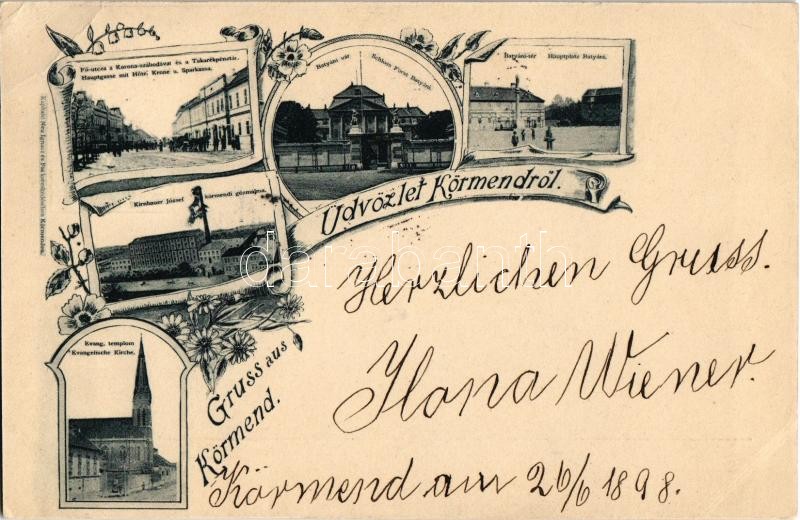 Fő-utcza a Korona-szállodával és a Takarékpénztár.
Hauptgasse mit Hôtel Krone u. Sparkassa.
Batyáni vár Schloss Fürst Batyáni.
Batyáni-tér Hauptplatz Batyáni.
Kirnbauer József körmendi gőzmalma.
Üdvözlet Körmendről.
Evang. templom
Evangelische Kirche.
Gruss aus
Körmend.
Herzlichen Gruss.
Ilona Wiener.
Körmend am 26/6 1898.
darabanth